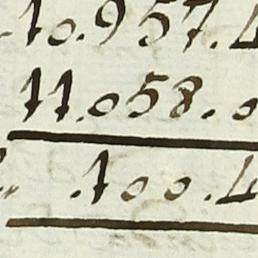 10.957.4
11.058.0
.100.4